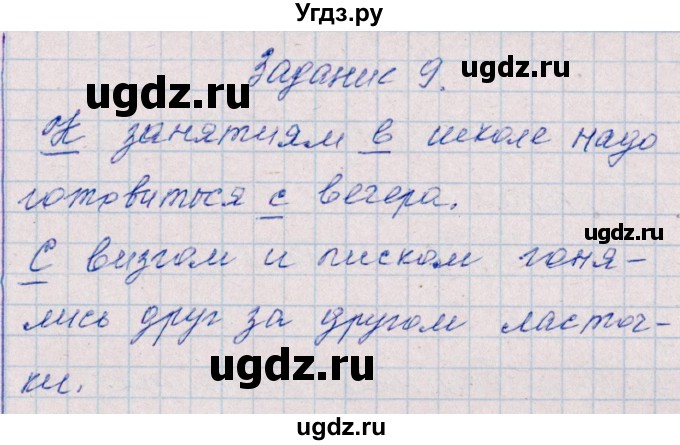 Угдз.ру
Задание 9.
ugdz.ru ugdz.ru
К занятиям в школе надо
готовиться с вечера.
ugdz.ru ugdz.ru
С визгом и писком гоня-
лись друг за другом ласточ-
ugdz.ru ugdz.ru
ки.
ugdz.ru